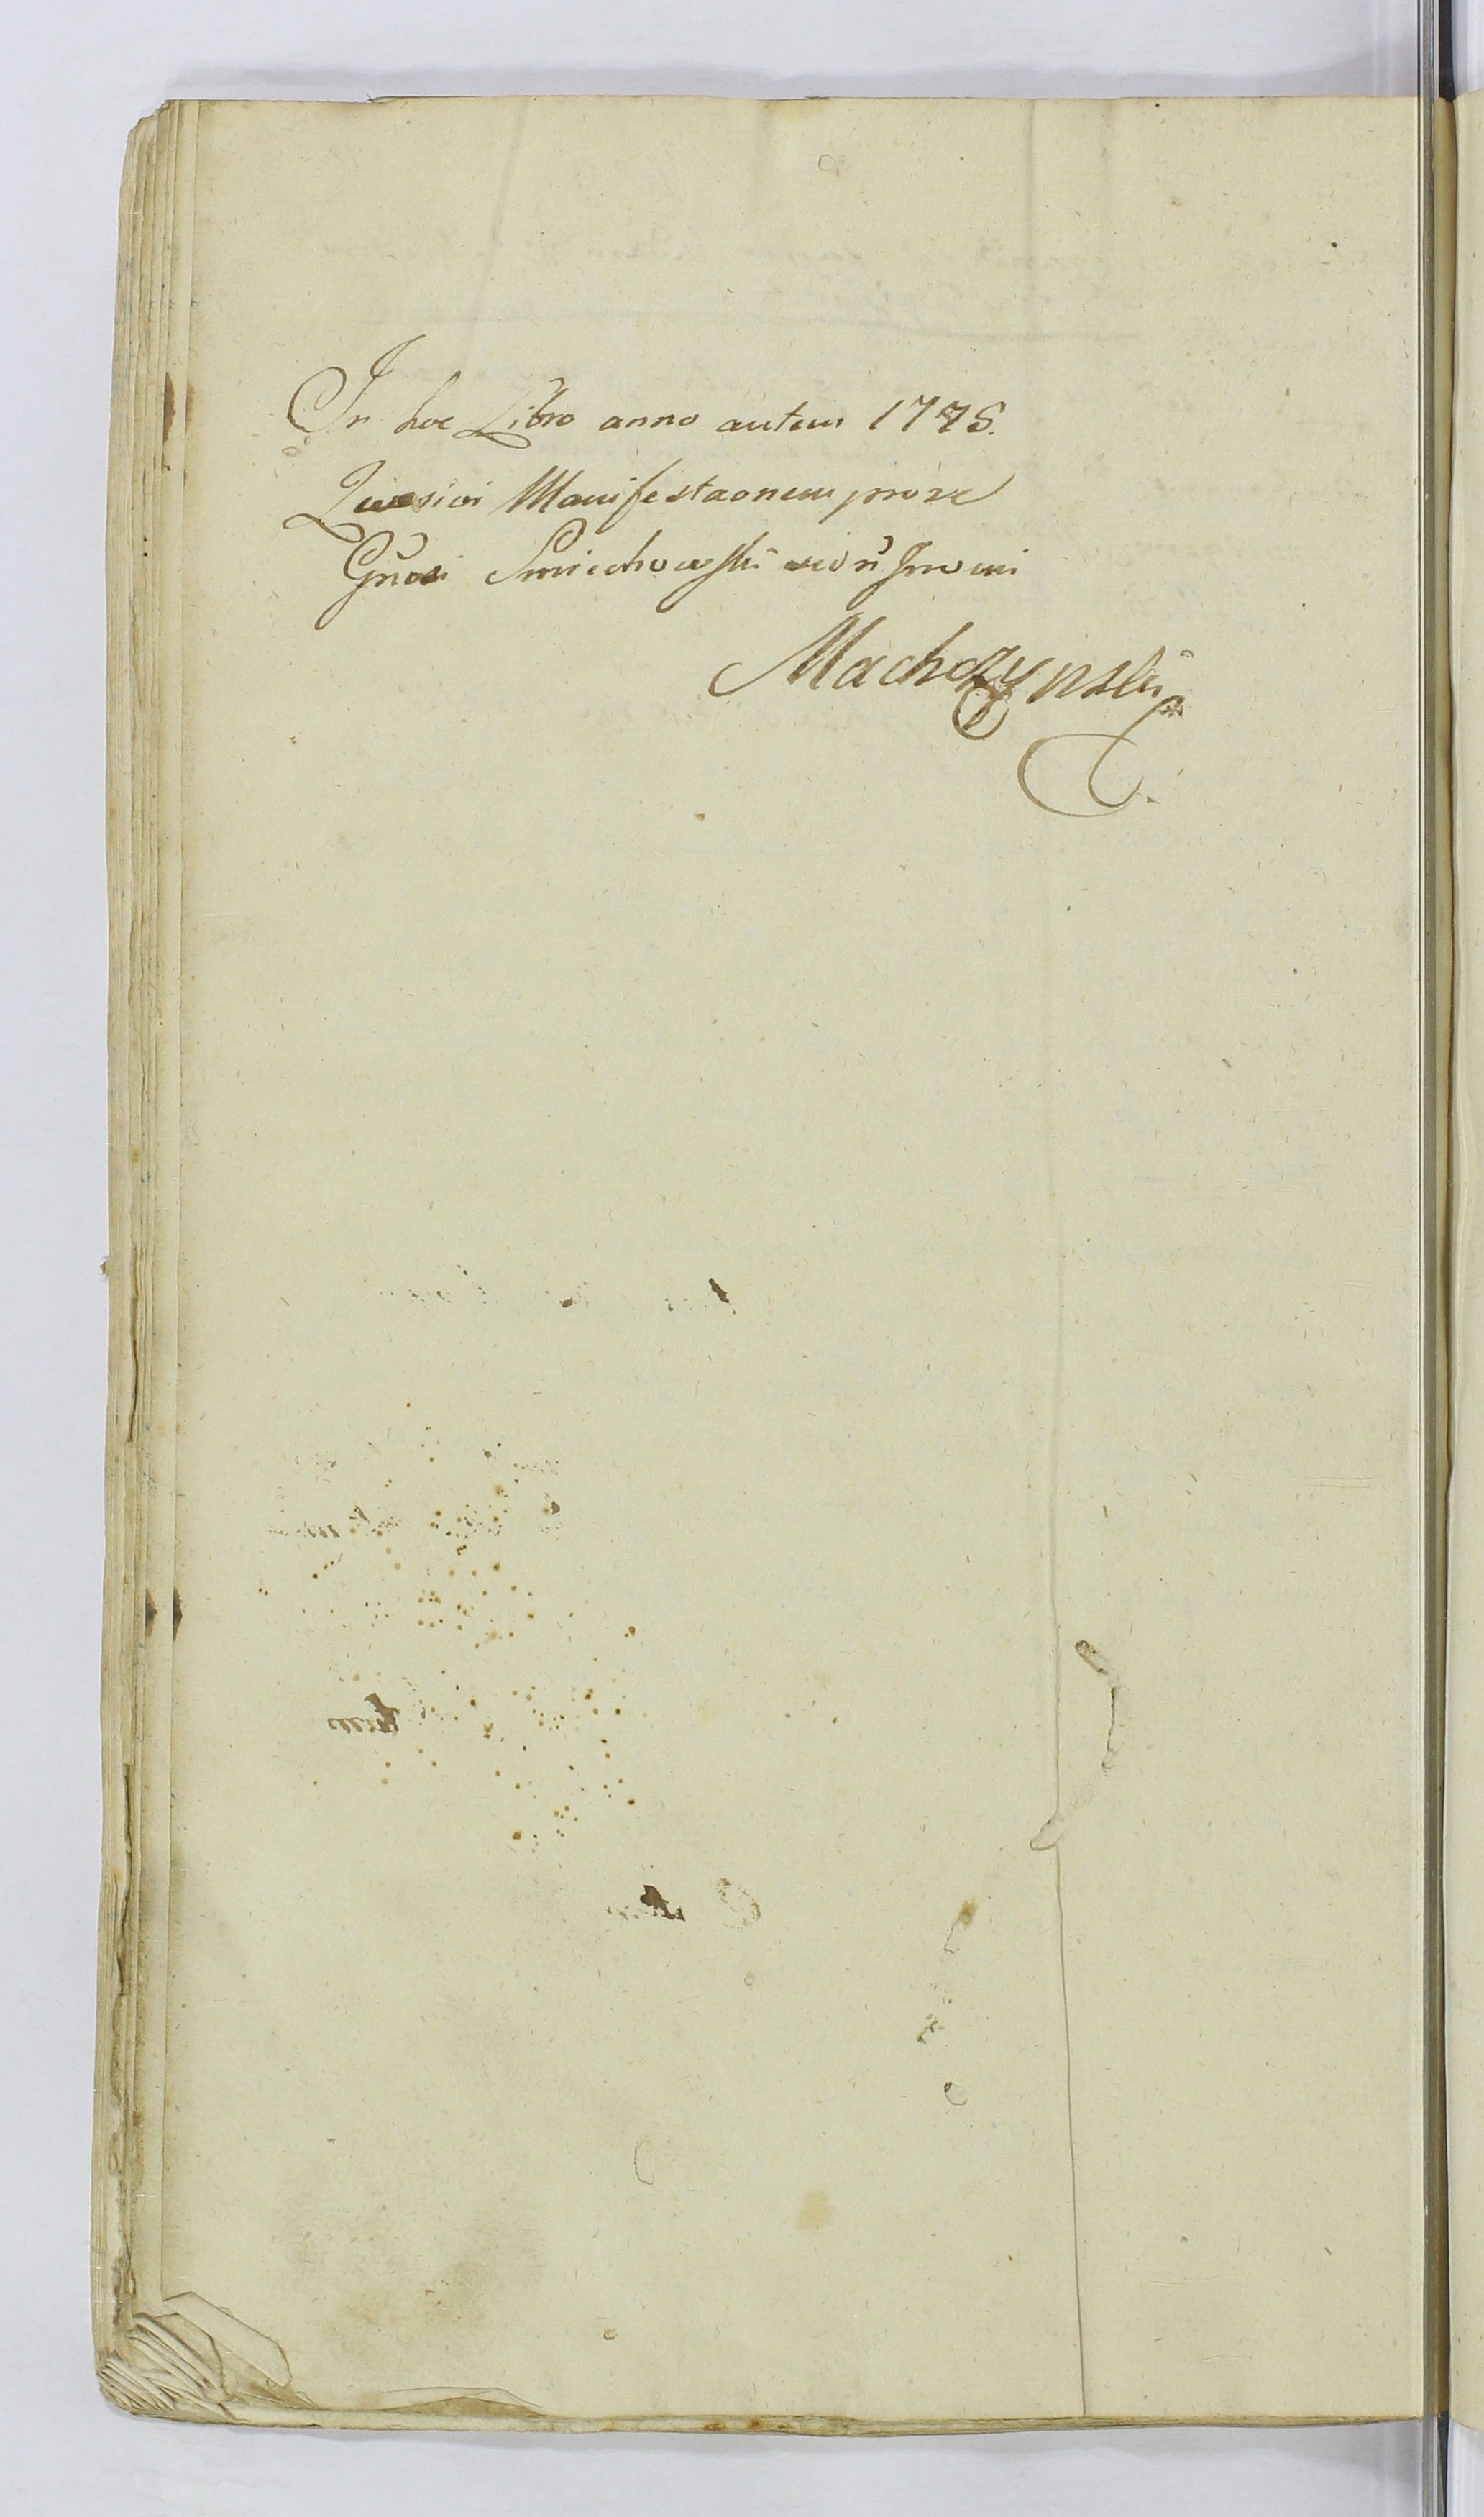 In hoc Libro anno autem 1775.
Quesivi Manifestaonem prose
Gnosi Smiechowski
Machczynski